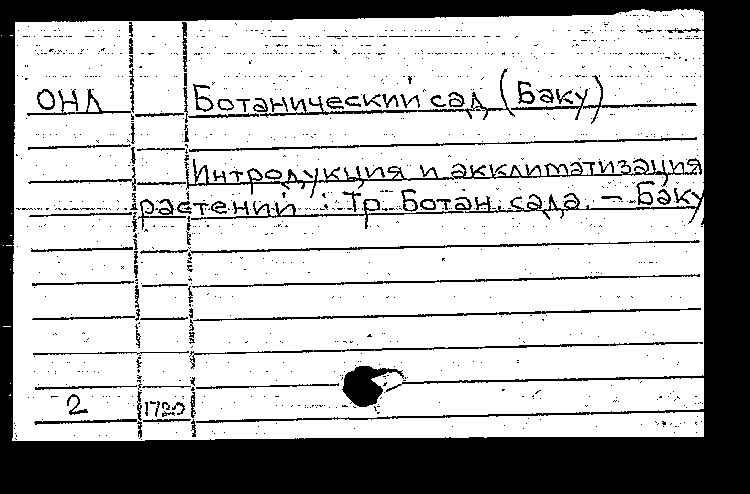 ОНЛ Ботанический сад (Баку)
Интродукция и акклиматизация
растений : Тр. Ботан. сада. - Баку
2 1720